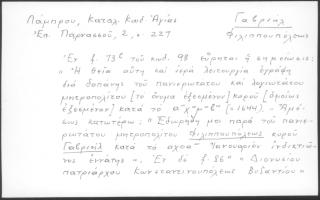 Λάμπρου, Καταλ. Κωδ. Ἁγίας
Γαβριὴλ
Ἐπ. Παρνασσοῦ, 2, σ. 227
Φιλιππουπόλεως
Ἐν φ. 73β τοῦ κωδ. 98 εὕρηται ἡ σημείωσις:
" Ἡ θεία αὕτη καὶ ἱερὰ λειτουργία ἐγράφη
διὰ δαπάνης τοῦ πανιερωτάτου καὶ λογιωτάτου
μητροπολίτου [τὸ ὄνομα ἐξεσμένον] κυροῦ [ὁμοίως
ἐξεσμένον] κατὰ τὸ αχμδ (-1644). - Ἀμέ-
σως κατωτέρω: " Ἐδωρήθη μοι παρὰ τοῦ πανιε-
ρωτάτου μητροπολίτου Φιλιππουπόλεως κυροῦ
Γαβριὴλ κατὰ τὸ αχοα Ἰανουαρίῳ ἰνδικτιῶ-
νος ἐννάτης ". Ἐν δὲ φ. 86 " Διονυσίου
πατριάρχου Κωνσταντινουπόλεως Βυζαντίου "